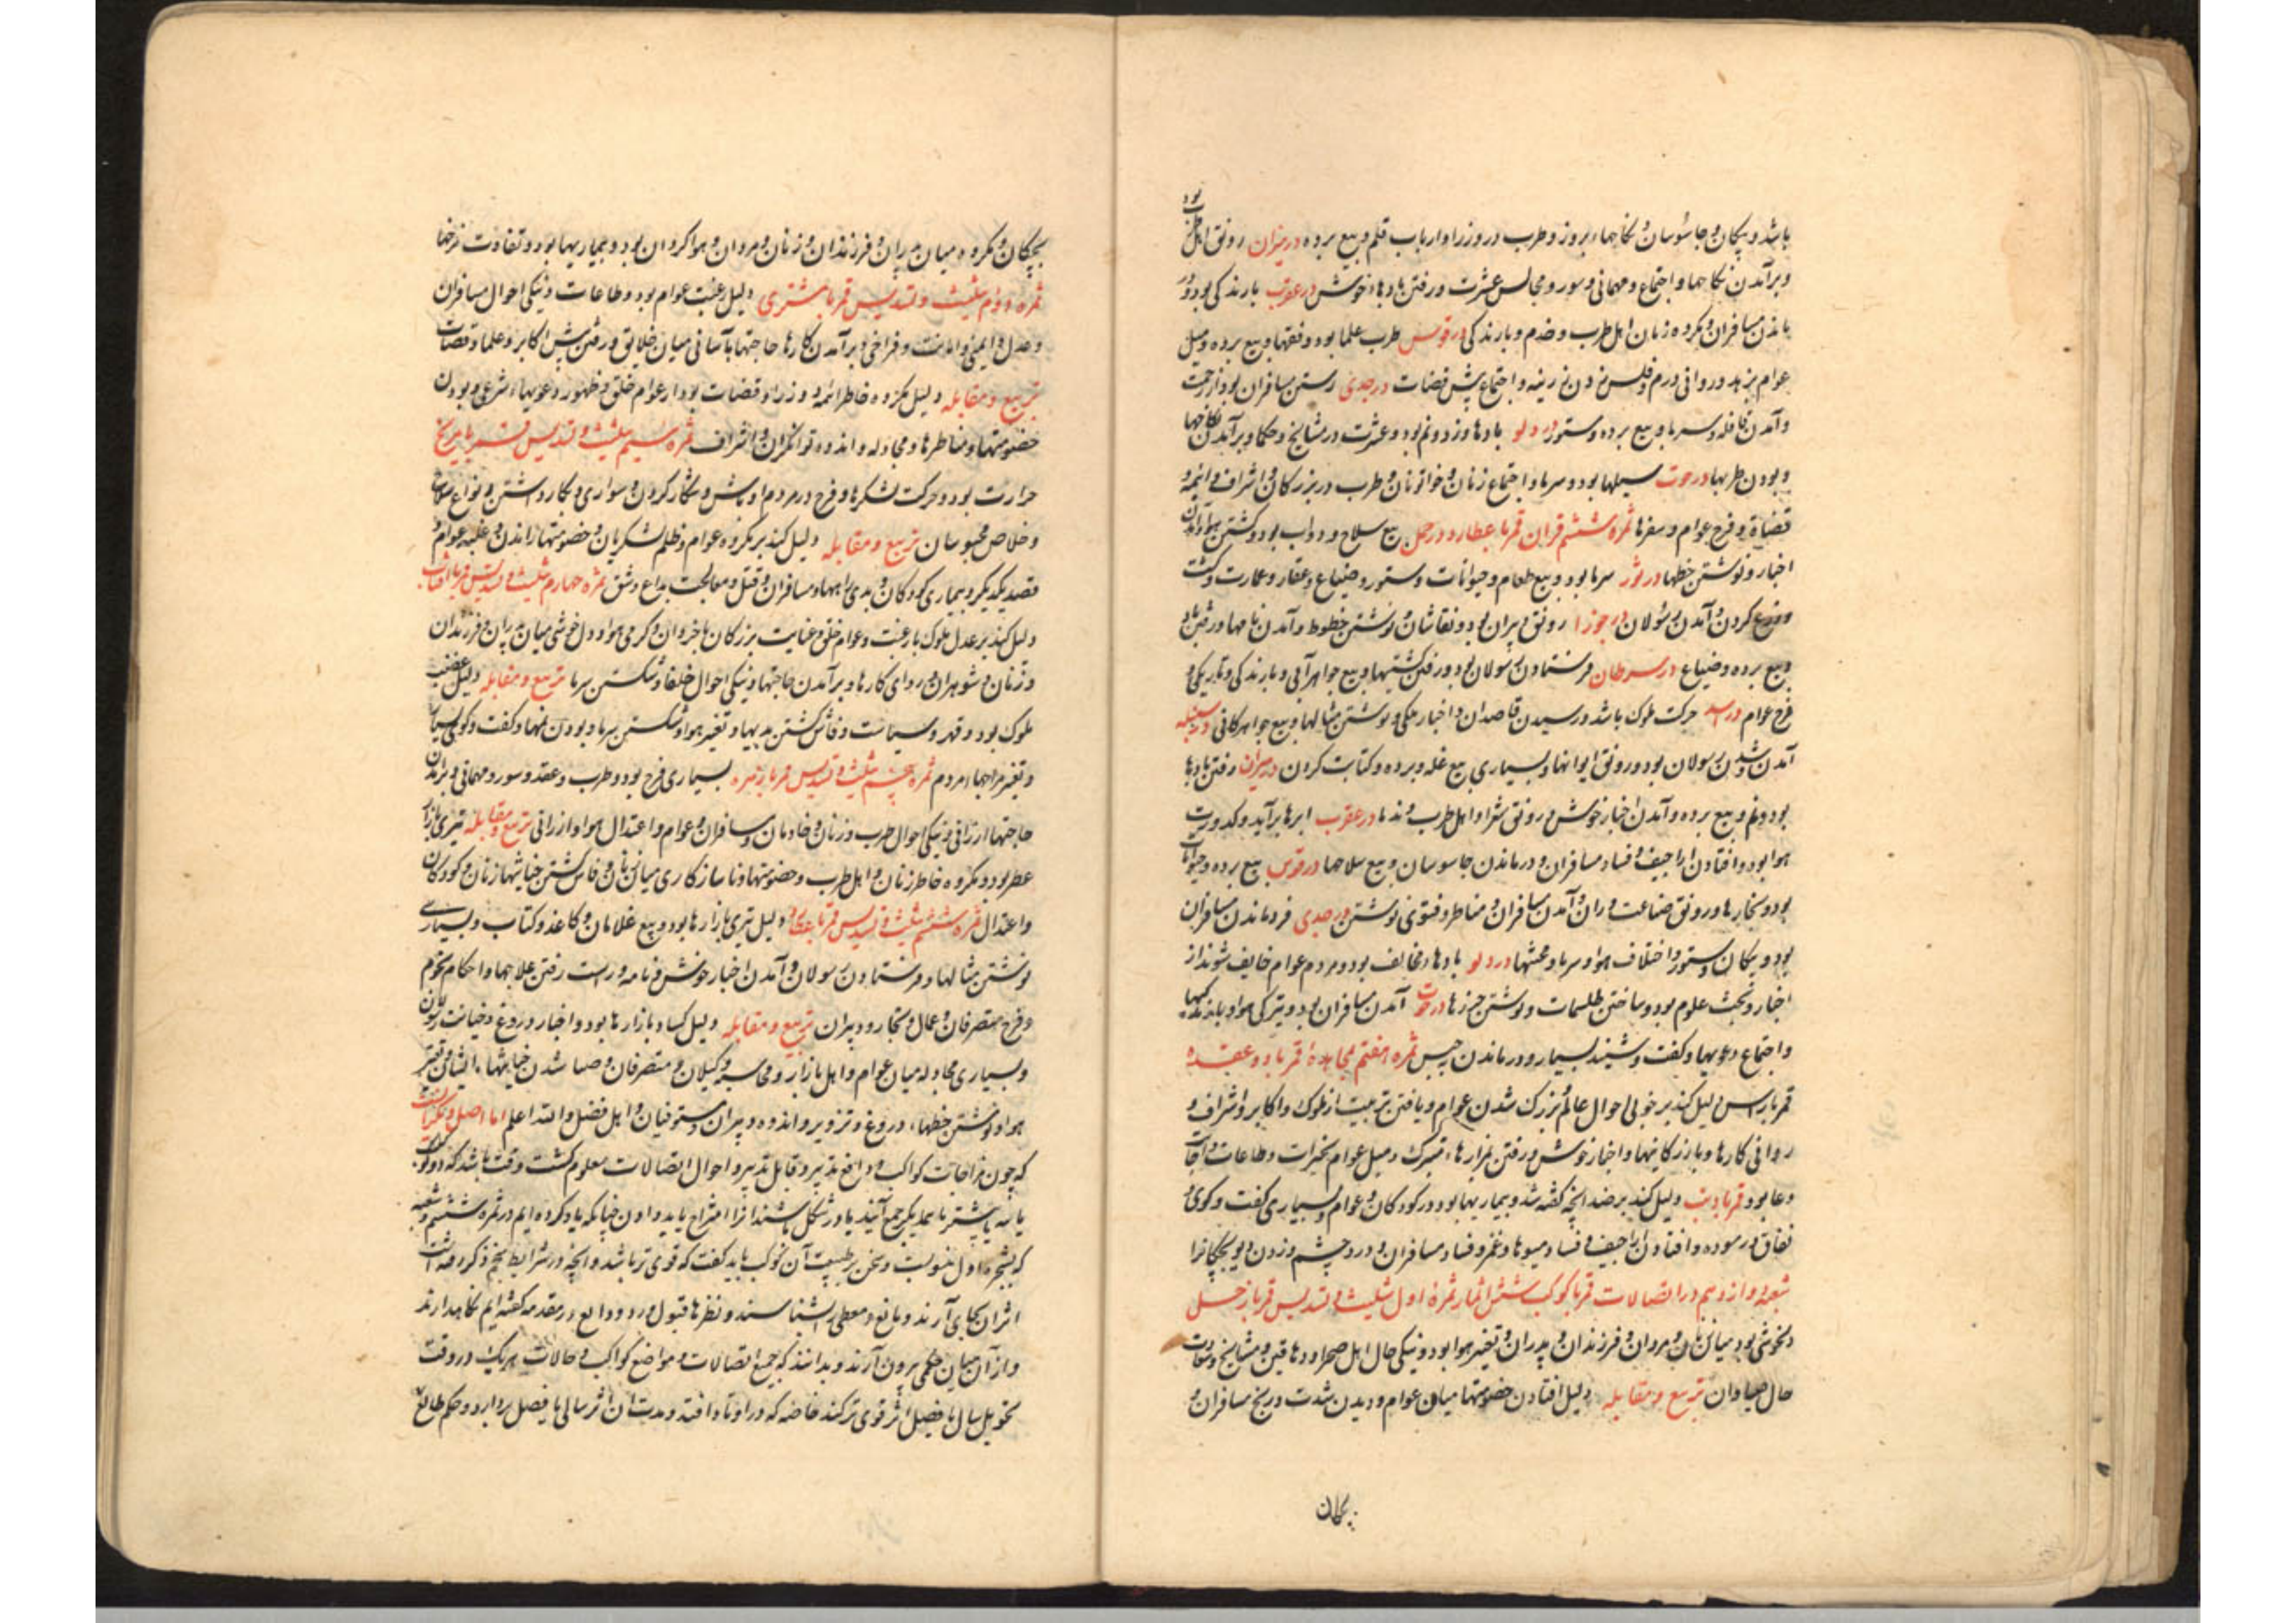 باشد و پیکان و جاسوسان و نکاحها بروز و طرب در وزرا و ارباب قلم و بیع برده در میزان رونق اهل طرب بود
و برآمدن نکاحها و اجتماع و مهمانی و سور و مجالس عشرت و رفتن بادهاء خوش در عقرب بارندکی بود و در
ماندن مسافران و مکروه زنان اهل طرب و خدم و بارندکی در قوس طرب علما بود و فقها و بیع برده و میل
عوام بزهد و روانی درم و فلس زدن زرینه و اجتماع پیش قضات در جدی رستن مسافران بود از زحمت
و آمدن قافله و سرما و بیع برده و ستور در دلو بادها وزد و نم بود و عشرت در مشایخ و حکما و برآمدن نکاحها
و بودن طربها در حوت سیلها بود و سرما و اجتماع زنان و خواتونان و طرب در بزرکان و اشراف و ائمه و
قضاة و فرح عوام و سفرها ثمره ششم قران قمر با عطارد در حمل بیع سلاح و دواب بود و کشتن هوا و آمدن
اخبار و نوشتن خطها در ثور سرما بود و بیع طعام و حیوانات و ستور و ضیاع و عقار و عمارت و کشت
و زرع کردن و آمدن رسولان در جوزا رونق دبیران بود و نقاشان و نوشتن خطوط و آمدن نامها و رفتن باد
و بیع برده و ضیاع در سرطان فرستادن رسولان بود و رفتن کشتیها و بیع جواهر آبی و بارندکی و تاریکی و
فرح عوام در اسد حرکت ملوک باشد و رسیدن قاصدان و اخبار ملکی و نوشتن مثالها و بیع جواهر کانی در سنبله
آمدن و شدن رسولان بود و رونق ایوانها و بسیاری بیع غله و برده و کتابت کردن در میزان رفتن بادها
بود و نم و بیع برده و آمدن اخبار خوش و رونق شعرا و اهل طرب و ندما در عقرب ابرها برآید و کدورت
هوا بود و افتادن اراجیف و فساد مسافران و درماندن جاسوسان و بیع سلاحها در قوس بیع برده و حیوانات
بود و بخارها و رونق صناعت وران و آمدن مسافران و مناظر و فتوی نوشتن در جدی فروماندن مسافران
بود و پیکان و ستور و اختلاف هوا و سرما و محنتها در دلو بادهاء مخالف بود و مردم عوام خایف شوند از
اخبار و بحث علوم بود و ساختن طلسمات و نوشتن حرزها در حوت آمدن مسافران بود و تیرکی هوا و بارندکیها
و اجتماع دعویها و کفت و شنید بسیار و درماندن بحبس ثمره هفتم مجاسده قمر با دو عقده
قمر با راس دلیل کند بر خوبی احوال عالم و بزرک شدن عوام و یافتن تربیت از ملوک و اکابر و اشراف و
روانی کارها و بازرکانیها و اخبار خوش و رفتن بمزارهاء متبرک و میل عوام بخیرات و طاعات و اجابت
دعا بود قمر با ذنب دلیل کند بر ضد آنچه کفته شد و بیماریها بود در کودکان و عوام و بسیاری کفت و کوی و
نفاق در سوده و افتادن اراجیف و فساد میوها و غمز و فساد مسافران و درد چشم و زدن دیو بچکانرا
شعبه دوازدهم در اتصالات قمر با کوکب شش اثمار ثمره اول تثلیث و تسدیس قمر با زحل
دلخوشی بود میان زنان و مردان و فرزندان و پدران و تغیر هوا بود و نیکی حال اهل صحرا و دهاقین و مشایخ و سعادت
حال صیادان تربیع و مقابله دلیل افتادن خصومتها میان عوام و دیدن شدت و رنج مسافران و
بچکان
بچکان و مکروه میان پیران و فرزندان و زنان و مردان و هوا کردان بود و بیماریها بود و تفاوت نرخها
ثمره دوم تثلیث و تسدیس قمر با مشتری دلیل رغبت عوام بود و طاعات و نیکی احوال مسافران
و عدل و ایمنی و امانت و فراخی و برآمدن کارها حاجتها بآسانی میان خلایق و رفتن پیش اکابر و علما و قضات
تربیع و مقابله دلیل مکروه خاطر ائمه و وزرا و قضات بود از عوام خلق و ظهور دعویهاء شرعی و بودن
خصومتها و مناظرها و مجادله و اندوه توانکران و اشراف ثمره سیم تثلیث و تسدیس قمر با مریخ
حرارت بود و حرکت لشکرها و فرح در مردم اوباش و شکار کردن و سواری و بکار داشتن انواع سلاح
و خلاص محبوسان تربیع و مقابله دلیل کند بر مکروه عوام و ظلم لشکریان و خصومتها راندن و غلبه عوام و
قصد یکدیکر و بیماری کودکان و بدی راهها و مسافران و قتل و معالجت بداغ و شق ثمره چهارم تثلیث و تسدیس قمر با آفتاب
دلیل کند بر عدل ملوک با رعیت و عوام خلق و عنایت بزرکان با خردان و کرمی هوا و دل خوشی میان پدران و فرزندان
و زنان و شوهران و روای کارها و برآمدن حاجتها و نیکی احوال خلفا و شکستن سرما تربیع و مقابله دلیل غضب
ملوک بود و قهر و سیاست و فاش کشتن بدیها و تغیر هوا و شکستن سرما و بودن تهمتها و کفت و کوی بسیار
و تغیر مزاجهاء مردم ثمره پنجم تثلیث و تسدیس قمر با زهره بسیاری فرح بود و طرب و عقد و سور و مهمانی و برآمدن
حاجتها ارزانی و نیکی احوال طرب و زنان و خادمان و مسافران و عوام و اعتدال هوا و ارزانی تربیع و مقابله تیزی بازار
عطر بود و مکروه خاطر زنان و اهل طرب و خصومتها و ناسازکاری میان زنان و فاش کشتن خیانتها زنان و کودکان
و اعتدال ثمره ششم تثلیث و تسدیس قمر با عطارد دلیل تیزی بازارها بود و بیع غلامان و کاغذ و کتاب و بسیاری
نوشتن مثالها و فرستادن رسولان و آمدن اخبار خوش و نامه و راست رفتن علاجها و احکام نجوم
و فرح متصرفان و عمال و تجار و دبیران تربیع و مقابله دلیل کساد بازارها بود و اخبار دروغ و خیانت رسولان
و بسیاری مجادله میان عوام و اهل بازار و محاسبه وکیلان و متصرفان و صبا شدن خیانتهاء ایشان و تغیر
هوا و نوشتن خطهاء دروغ و تزویر و اندوه دبیران و مستوفیان و اهل فضل والله اعلم اما اصل و نکته آنست
که چون مزاجات کواکب دافع تدبیر و قابل تدبیر و احوال اتصالات معلوم کشت وقت باشد که دو کوکب
یا سه یا بیشتر با همدیکر جمع آیند یا در شکل باشند آنرا امتزاج باید دادن چنانکه یاد کرده ایم در ثمره ششم و شعبه
که بشجره اول منسوبست و سخن بر طبیعت آن کوکب باید کفت که قوی تر باشد و آنچه در شرایط تنجیم ذکر رفته است
اثر آن بجای آرند و مانع و معطی بشناسند و نظرها قبول و رد و دافع در مقدمه کفته ایم نکاه دارند
و از آن میان حکمی بیرون آرند و بدانند که جمیع اتصالات و مواضع کواکب و حالات هر یک در وقت
تحویل سال یا فصل اثر قوی تر کند خاصه که در اوتاد افتد و مدت آن اثر سالی یا فصل بردارد و حکم طالع